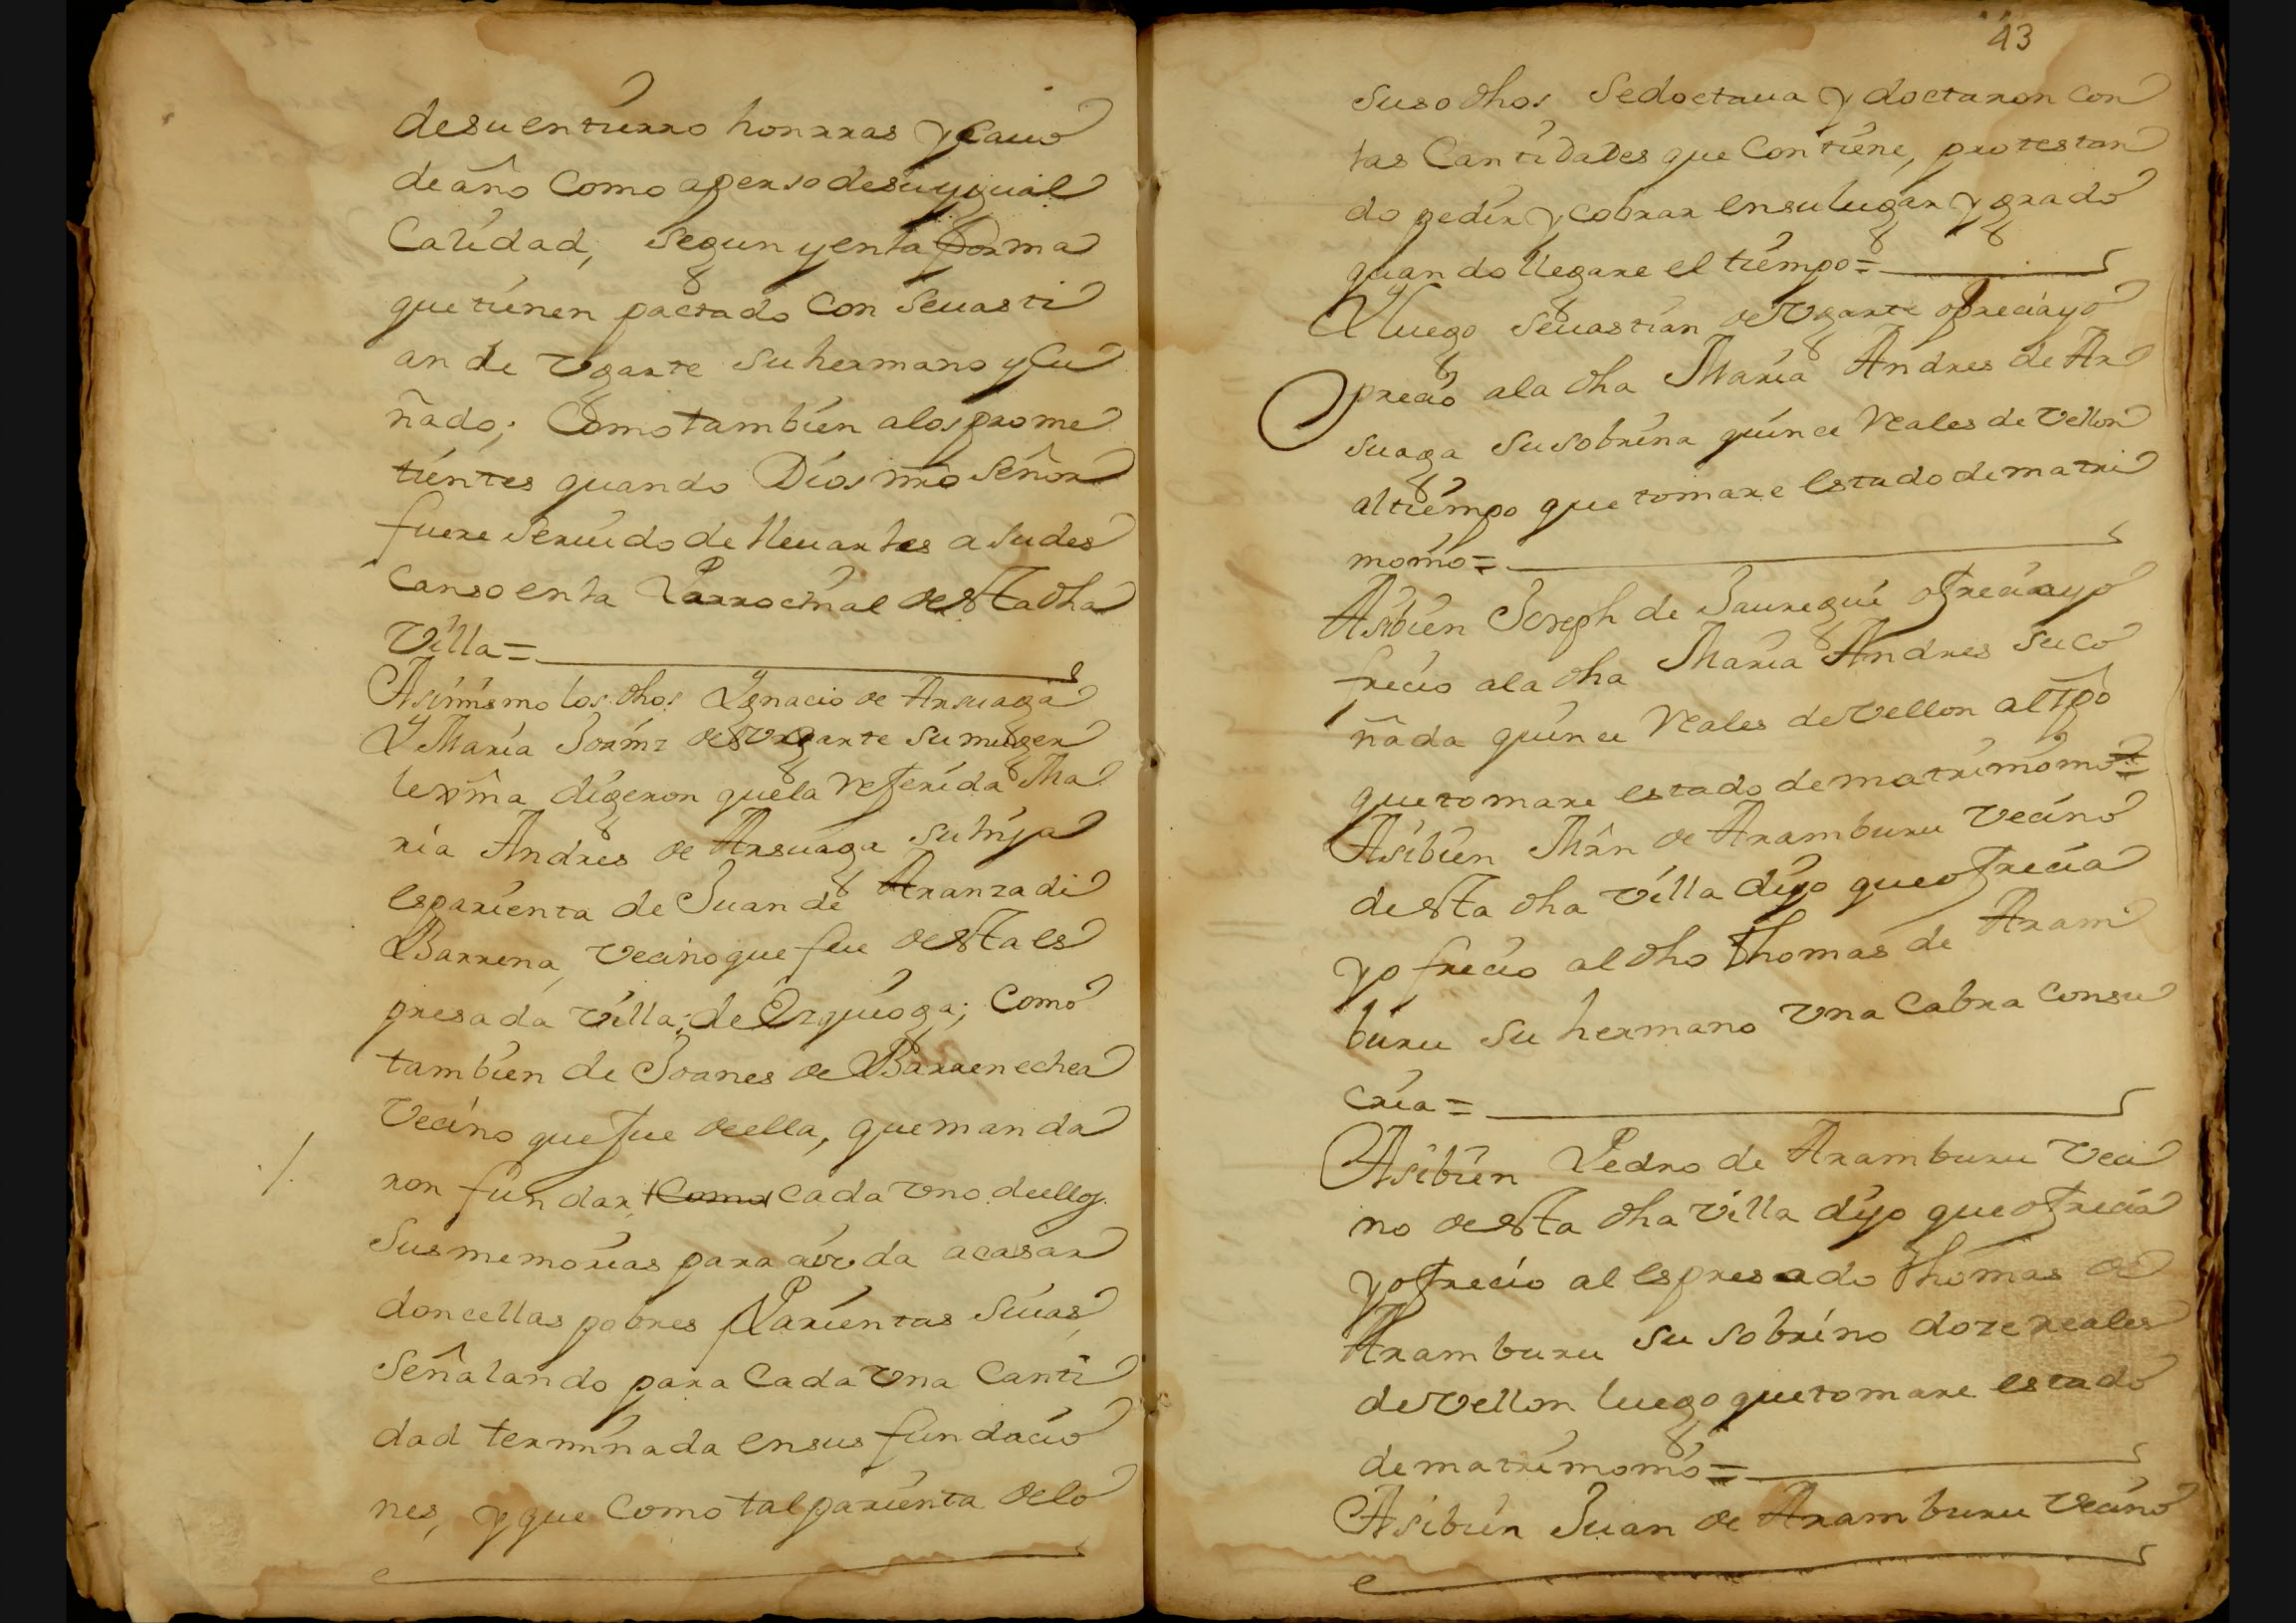 desu entierro honrras y cauo
de año Como aperso desu ygual
Calidad, segun y enla forma
que tienen pactado Con Seuasti
an de Vgarte su hermano y Cu
ñado; Como tambien alos prome
tientes quando Dios nro Señor
fuere seruido de lleuarles a su des
canso enla Parrochial desta dha
Villa=
Asimismo los dhos Ygnacio de Arsuaga
Y Maria de Vgarte su muger
lexma digeron quela referida Ma
ria Andres de Arsuaga su hija
es parienta de Juan de Aranzadi
Barrena, Vecino que fue desta es
presada Villa, de Ezquioga; Como
tambien de Joanes de Barrenechea
Vecino que fue de ella, que manda
ron fundar, Como cada vno de ellos
Sus memorias para ayuda acasar
doncellas pobres Parientas suias,
Señalando para Cada Vna Canti
dad terminada ensus fundacio
nes, y que Como tal parienta delo
43
suso dhos Sedoctaua y doctaron con
las Cantidades que Contiene, protestan
do pedir y cobrar en su lugar y grado
quando llegare el tiempo=
Y luego Seuastian de Vgarte ofrecia yo
frecio ala dha Maria Andres de Ar
suaga su sobrina quince Reales de Vellon
al tiempo que tomare estado de matri
monio=
Asibien Joseph de Jauregui ofrecia yo
frecio ala dha Maria Andres su cu
ñada quince Reales de vellon al tpo
que tomare estado de matrimonio=
Asibien Mrn de Aramburu Vecino
desta dha Villa dijo que ofrecia
yofrecio al dho Thomas de Aram
buru su hermano Vna Cabra Consu
cria=
Asibien Pedro de Aramburu Veci
no desta dha Villa dijo que ofrecia
yofrecio al espresado Thomas de
Aramburu su sobrino doze reales
de Vellon luego que tomare estado
de matrimonio=
Asibien Juan de Aramburu Vecino